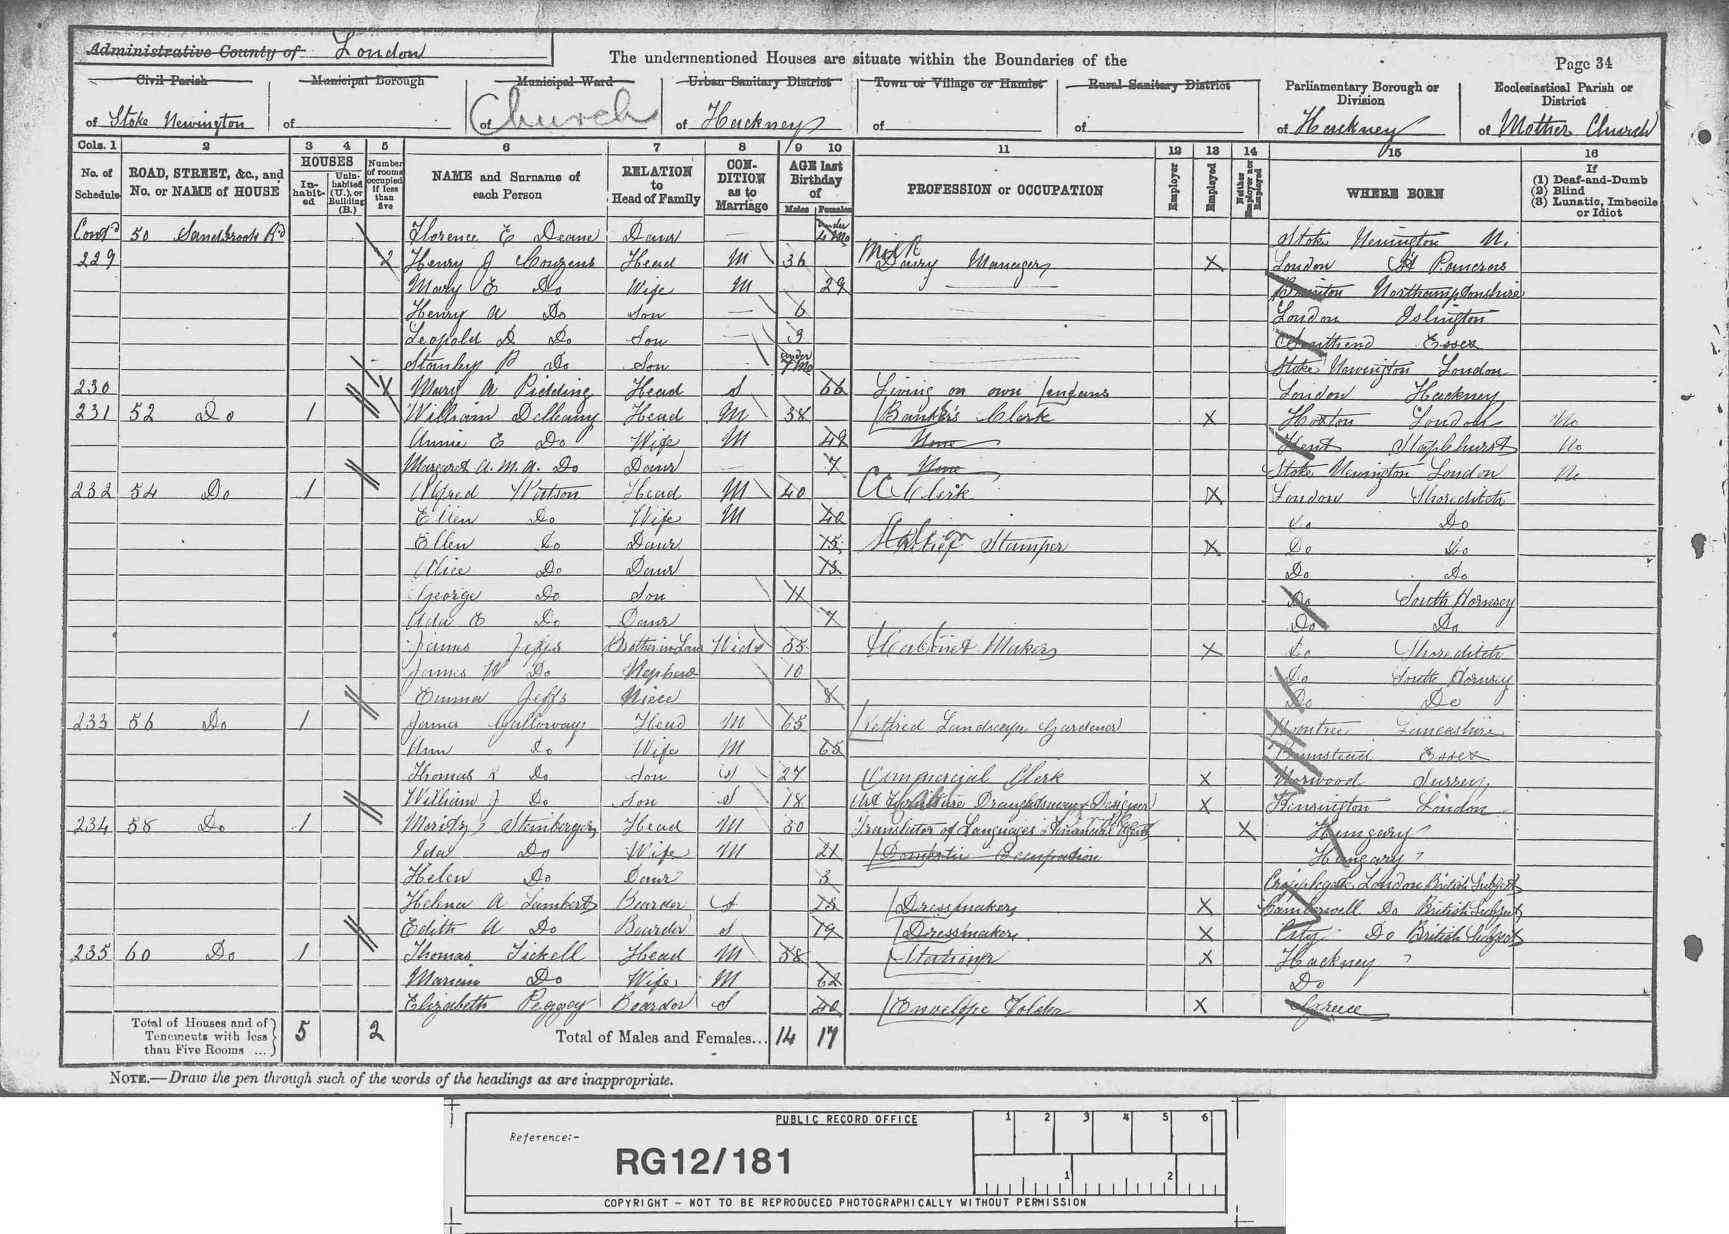 Administrative County of London
The undermentioned Houses are situate within the Boundaries of the
Page 34
Civil Parish of Stoke Newington
Municipal Borough of
Municipal Ward of Church
Urban Sanitary District of Hackney
Town or Village or Hamlet of
Rural Sanitary District of
Parliamentary Borough or Division of Hackney
Ecclesiastical Parish or District of Mother Church
Cols. 1 2 3 4 5 6 7 8 9 10 11 12 13 14 15 16
No. of Schedule
ROAD, STREET, &c., and No. or NAME of HOUSE
HOUSES In-habit-ed Unin-habited (U.), or Building (B.)
Number of rooms occupied if less than five
NAME and Surname of each Person
RELATION to Head of Family
CON-DITION as to Marriage
AGE last Birthday of Males Females
PROFESSION or OCCUPATION
Employer
Employed
Neither Employer nor Employed
WHERE BORN
If (1) Deaf-and-Dumb (2) Blind (3) Lunatic, Imbecile or Idiot
Contd 50 Sandbrook Rd Florence E Deane Daur — under 4 Mo Stoke Newington N.
229 2 Henry J Couzens Head M 36 Milk Dairy Manager X London St Pancras
Mary E Do Wife M 29 Northamptonshire
Henry A Do Son — 6 London Islington
Leopold D Do Son — 3 Southend Essex
Stanley B Do Son under 7 Mo Stoke Newington London
230 Mary A Pidding Head S 66 Living on own London Hackney
231 52 Do 1 William Head M 38 Banker's Clerk X Hoxton London No
Annie E Do Wife M 49 None Kent Staplehurst No
Margaret A. M. A. Do Daur — 7 None Stoke Newington London No
232 54 Do 1 Alfred Watson Head M 40 CC Clerk X London Shoreditch
Ellen Do Wife M 40 Do Do
Ellen Do Daur 15 Stamper X Do Do
Alice Do Daur 13 Do Do
George Do Son 11 Do South Hornsey
Ada E Do Daur 7 Do Do
James Jeffs Brother in Law Widr 55 Cabinet Maker X Do Shoreditch
James W Do Nephew 10 Do South Hornsey
Emma Jeffs Niece 8 Do Do
233 56 Do 1 James Galloway Head M 65 Retired Landscape Gardener Lancashire
Ann Do Wife M 65 Essex
Thomas Do Son S 27 Commercial Clerk X Norwood Surrey
William J Do Son S 18 Art Furniture Draughtsman & Designer X Kensington London
234 58 Do 1 Moritz Steinberger Head M 30 Translator of Languages & Financial Agent X Hungary
Ida Do Wife M 21 Domestic Occupation Hungary
Helen Do Daur 3 Cripplegate London British Subject
Helena A Lambert Boarder S Dressmaker X Camberwell Do British Subject
Edith A Do Boarder S 19 Dressmaker X City Do British Subject
235 60 Do 1 Thomas Tickell Head M 58 Stationer X Hackney
Do Wife M 62 Do
Elizabeth Peggey Boarder S 40 Envelope Folder X
Total of Houses and of Tenements with less than Five Rooms ... 5 2
Total of Males and Females... 14 17
NOTE.—Draw the pen through such of the words of the headings as are inappropriate.
PUBLIC RECORD OFFICE
1 2 3 4 5 6
Reference:-
RG12/181
1 2
COPYRIGHT - NOT TO BE REPRODUCED PHOTOGRAPHICALLY WITHOUT PERMISSION